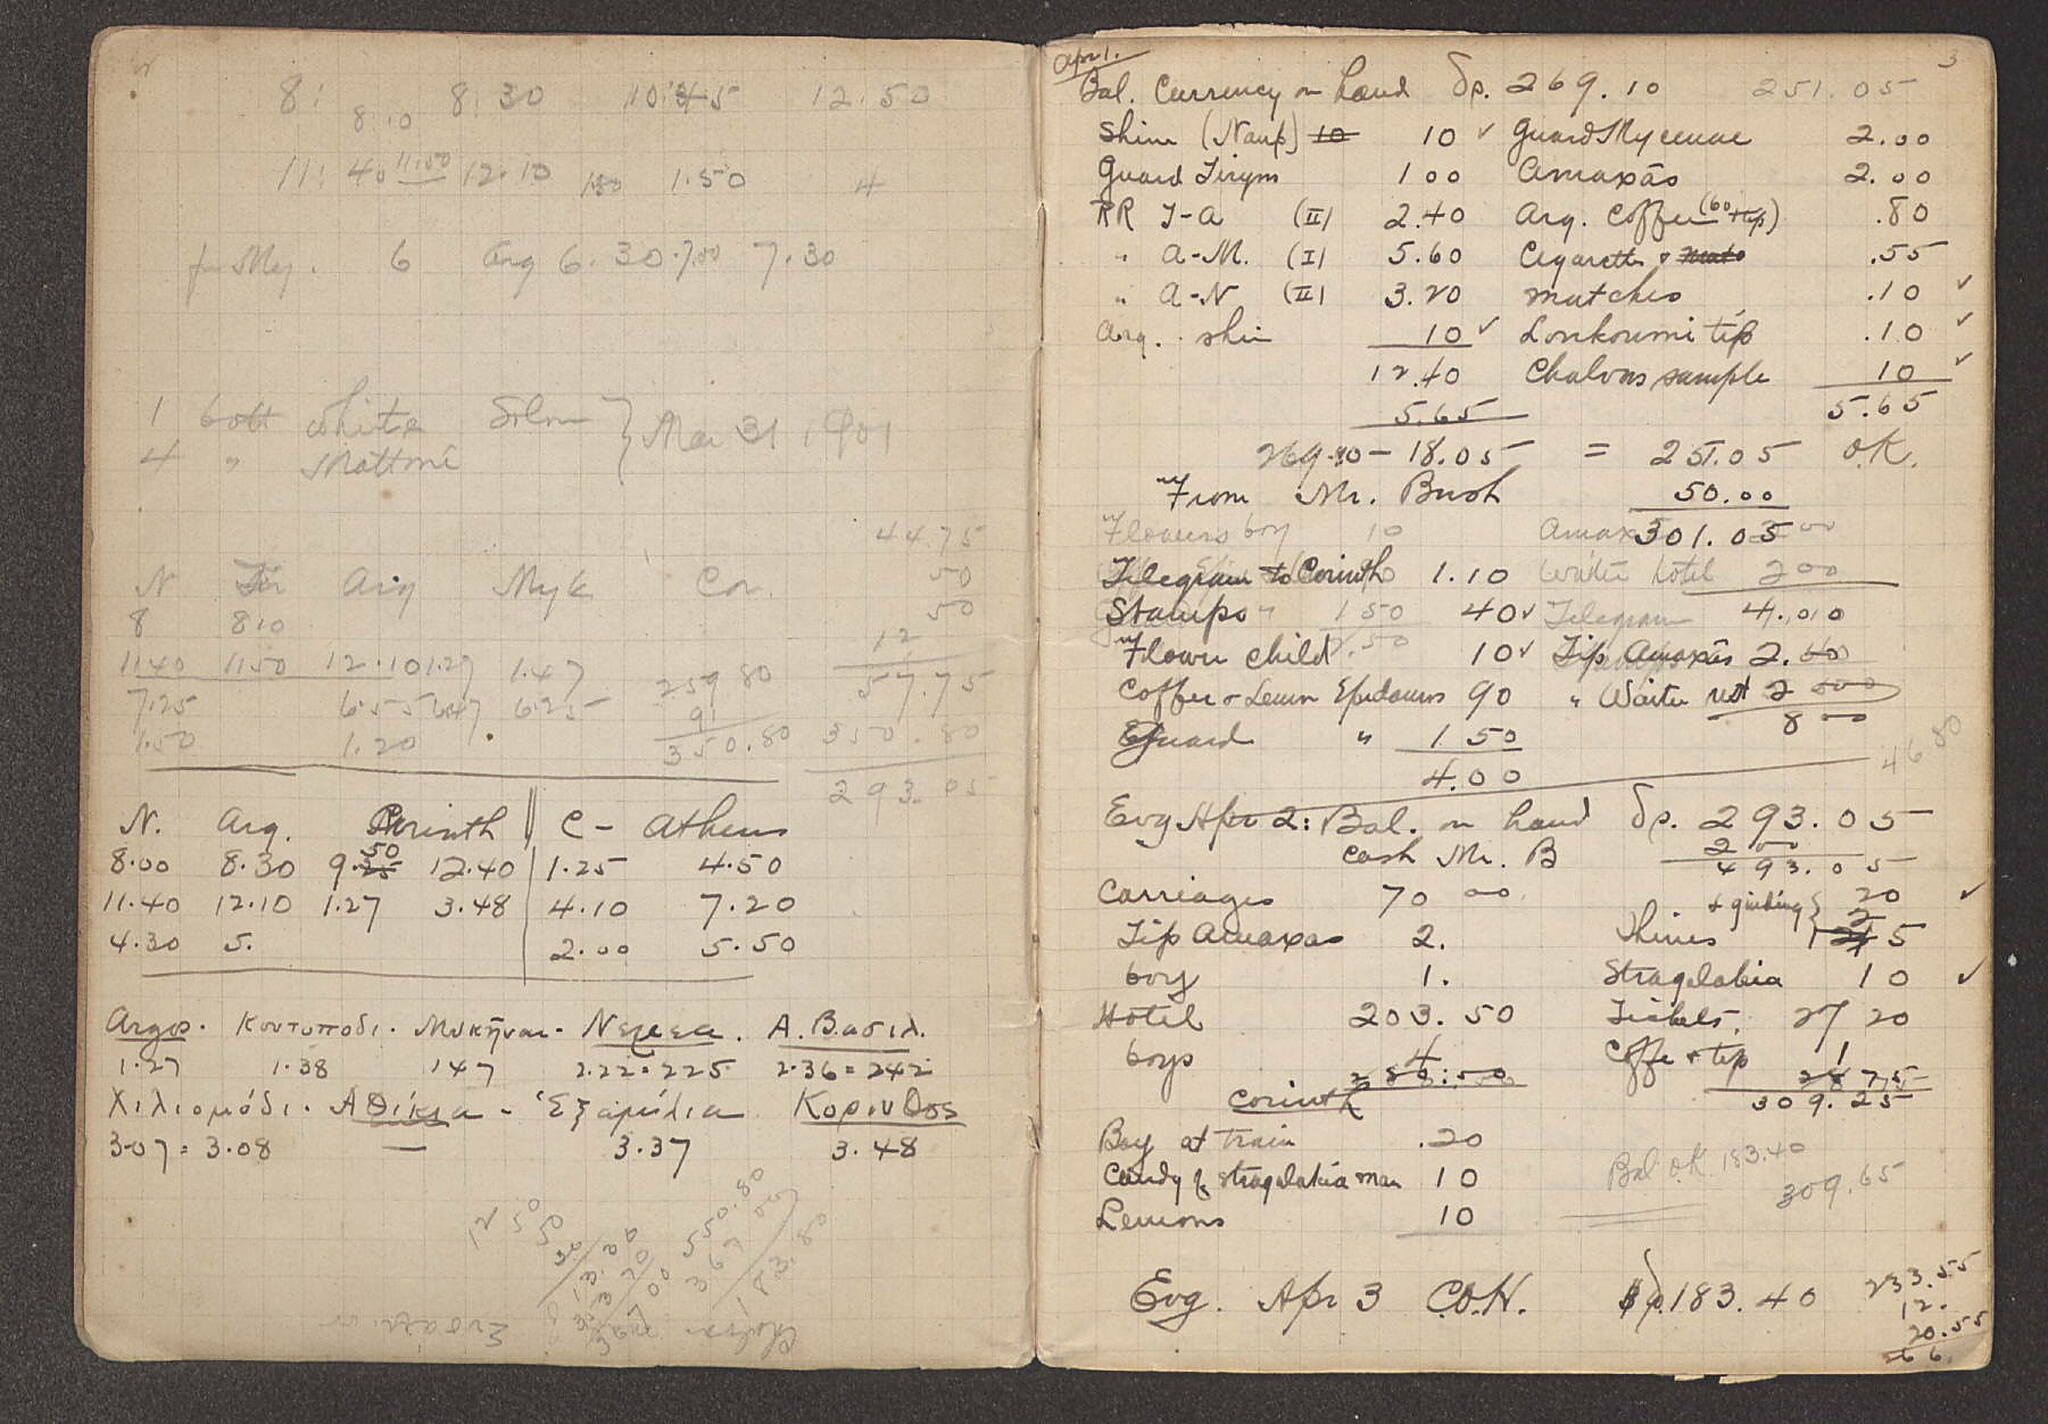 8: 8:30 10:45 12.50
8:10
11:40 11:50 12.10 1.50 4
for Myc. 6 Arg 6.30 7.00 7.30
1 bott white Solon } Mar 31, 1901
4 " Mattoni
44.75
50
N Tir Arg Myk Cor. 50
8 8.10 12
11.40 11.50 12.10 1.27 1.47 57.75
7.25 6.55 6.47 6.25 259 80
91
1.50 1.20 350.80 350.80
293.05
N. Arg. Corinth C - Athens
8.00 8.30 9.50 12.40 1.25 4.50
11.40 12.10 1.27 3.48 4.10 7.20
4.30 5. 2.00 5.50
Argos. Κουτοποδι. Μυκῆναι - Νεμεα. Α. Βασιλ.
1.27 1.38 147 2.22 = 225 2.36 = 242
Χιλιομόδι. Αθίκια - Ἑξαμίλια Κορινθος
3.07 = 3.08 — 3.37 3.48
3
Apr 1.
Bal. Currency on hand δρ. 269.10 251.05
Shine (Naup) 10 10 ✓ Guard Mycenae 2.00
Guard Tiryns 1 00 Amaxâs 2.00
RR T-A (II) 2.40 Arg. Coffee (60 + tip) .80
" A-M. (I) 5.60 Cigarettes .55
" A-N (II) 3.20 matches .10 ✓
Arg. shine 10 ✓ Loukoumi tip .10 ✓
12.40 Chalvas sample 10 ✓
5.65 5.65
269.10 - 18.05 = 251.05 O.K.
From Mr. Bush 50.00
Flowers boy 10 Amax 301.05
Telegram to Corinth 1.10 Waiter hotel 200
Stamps 1 50 40 ✓ Telegram 4.00
Flower child 10 ✓ Tip Amaxâs 2.
Coffee & Lemon Epidauros 90 " Waiter rest 2
8 00
Guard " 1 50
4.00 46.80
Evg Apr 2: Bal. on hand δρ. 293.05
Cash Mr. B 2 00
493.05
Carriages 70 00 + guiding } 20 ✓
Tip Amaxas 2. Shines 5
boy 1. Stragalakia 10 ✓
Hotel 203.50 Tickets. 27 20
boys 4 Coffee + tip 1
280.50 28 75
Corinth 309.25
Boy at train .20
Candy of stragalakia man 10 Bal OK 183.40
309.65
Lemons 10
Evg. Apr 3 C.O.H. δρ. 183.40
233.55
12.
20.55
66.